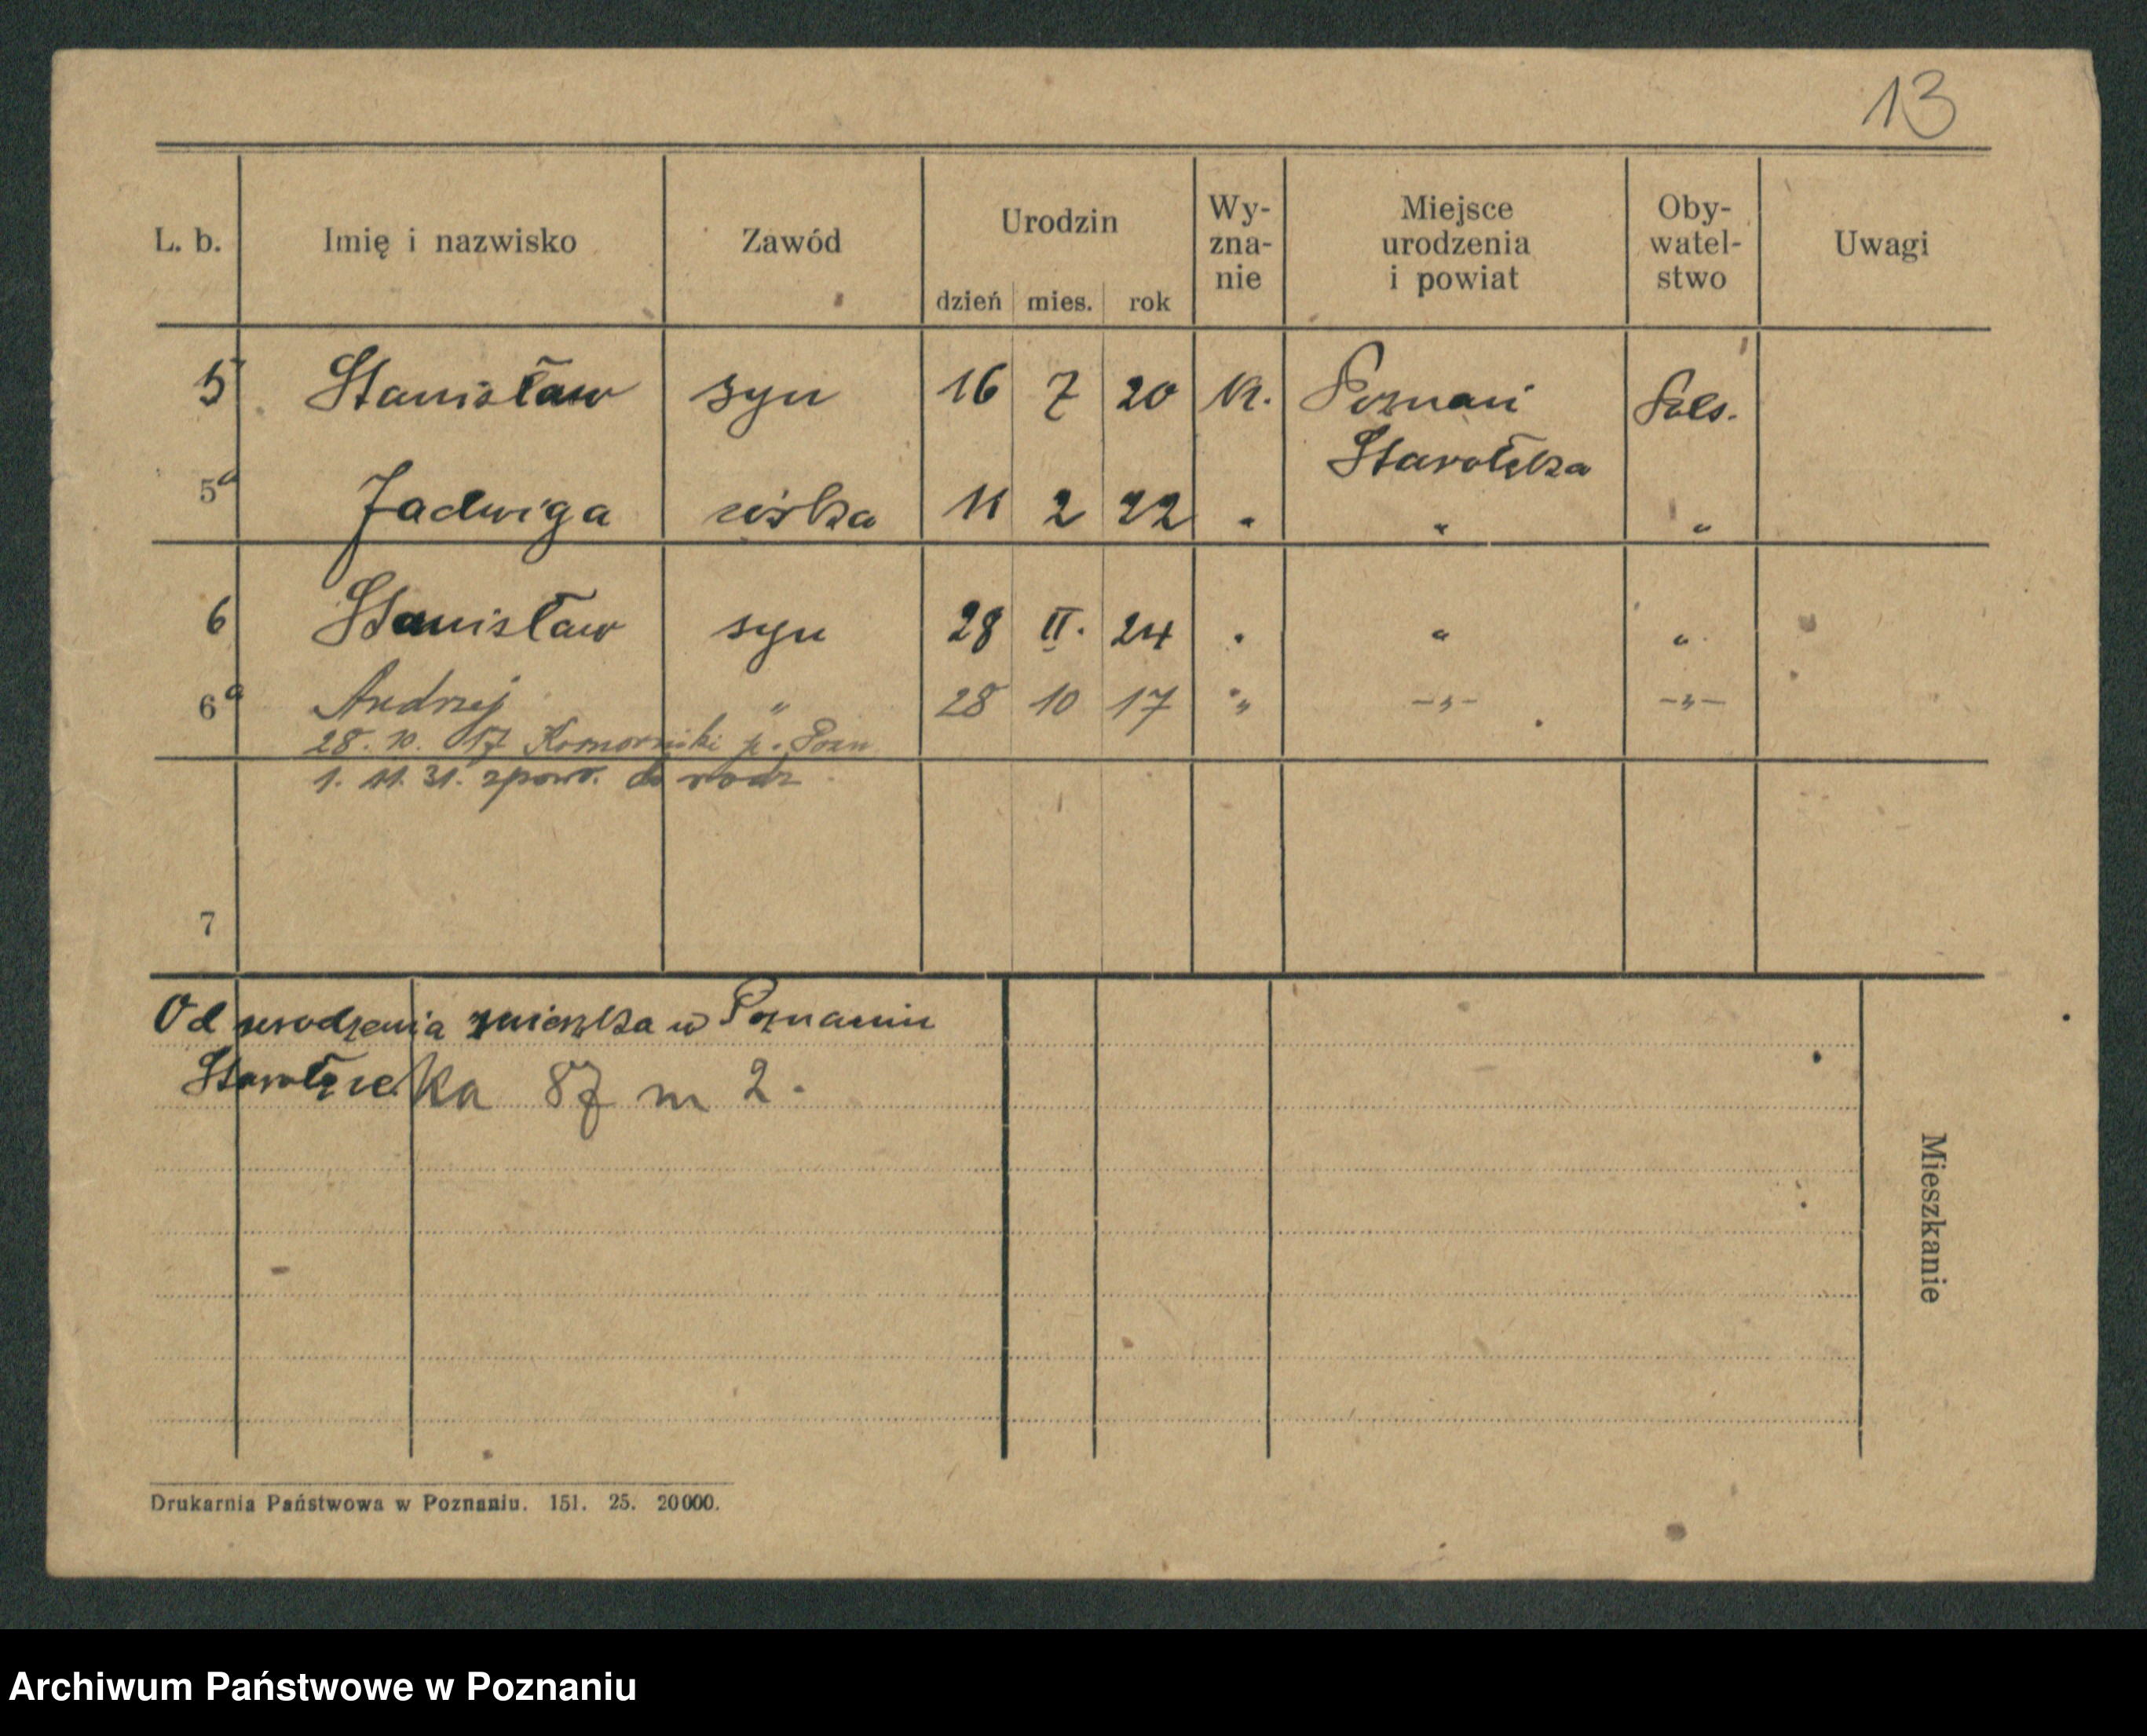 13
L. b. Imię i nazwisko Zawód Urodzin dzień mies. rok Wy-zna-nie Miejsce urodzenia i powiat Oby-watel-stwo Uwagi
5 Stanisław syn 16 7 20 k. Poznań Pols.
Starołęka
5a Jadwiga córka 11 2 22 " " "
6 Stanisław syn 28 II. 24 " " "
6a Andrzej " 28 10 17 " -"- -"-
28. 10. 17 Komorniki p. Pozn
1. 11. 31. zpowr. do rodz
7
Od urodzenia mieszka w Poznaniu
Starołęcka 87 m 2.
Mieszkanie
Drukarnia Państwowa w Poznaniu. 151. 25. 20000.
Archiwum Państwowe w Poznaniu